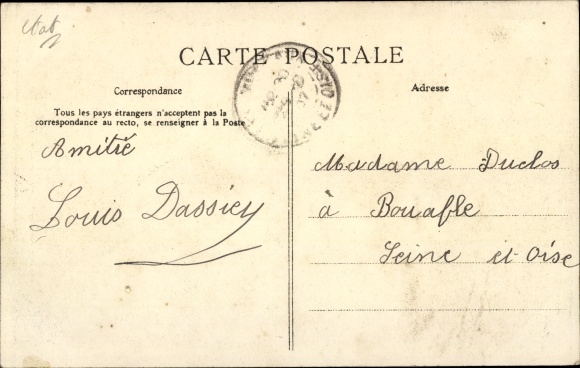 CARTE POSTALE
Correspondance
Tous les pays étrangers n'acceptent pas la
correspondance au recto, se renseigner à la Poste
Amitié
Louis
Adresse
Madame Duclos
à Bouafle
Seine et Oise